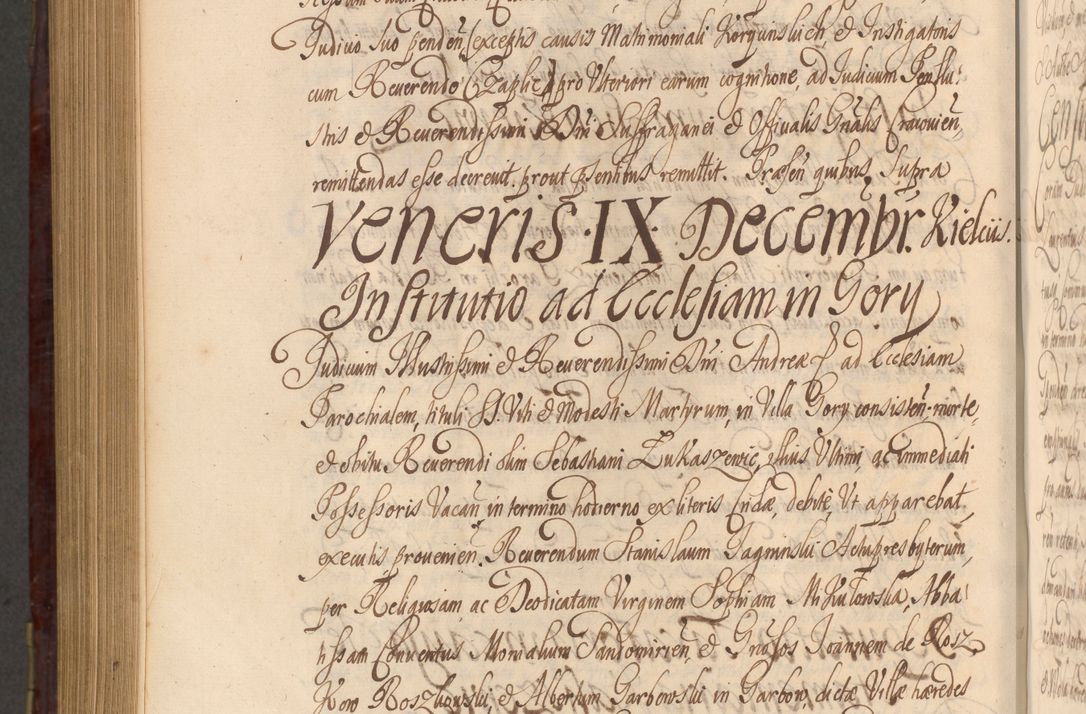 Judicio suo penden, (exceptis causis Matrimoniali Koryunslich, et Instigatoris
cum Reverendo Czaplic) pro Ulteriori earum cognitione, ad Iudicium Perillu-
stris et Reverendissimi Dni Suffraganei et Officialis Gnalis Cracovien,
remittendas esse decrevit. prout psentibus remittit. Præsen quibus, supra
Veneris. IX. Decembr. Kielciis.
Institutio ad Ecclesiam in Gory
Judicium Illustrissimi et Reverendissimi Dni Andreæ ad Ecclesiam
Parochialem, tituli SS. Viti et Modesti Martyrum, in Villa Gory consisten, morte,
et obitu Reverendi olim Sebastiani Łukaszewic, illius Ultimi, ac immediati
Possessoris Vacan, in termino hodierno ex literis Cridæ, debitè, Ut apparebat
executis provenien. Reverendum Stanislaum Jagninski Actupresbyterum,
per Religiosam ac Deodicatam Virginem Sophiam Mikułowska, Abba-
tissam Conventus Monialium Sandomirien, et Gnosos Joannem de Rosz
Kow Roszkowski, et Albertum Garbowski in Garbow, dictæ Villæ hæredes